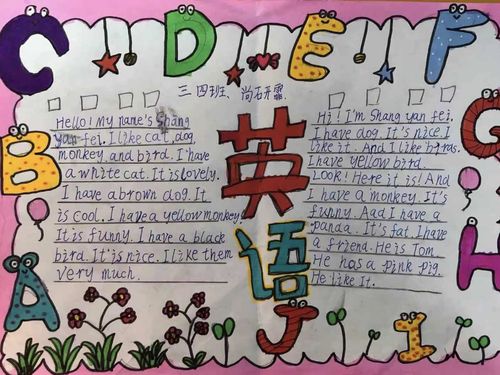 C D E F
B G
A J I H
三.四班、尚砳霏
英
语
Hello! My name's Shang
yan fei. I like cat, dog
monkey. and bird. I have
a white cat. It is lovely.
I have a brown dog. It
is cool. I have a yellow monkey
It is funny. I have a black
bird. It is nice. I like them
very much.
Hi! I'm Shang yan fei.
I have dog. It's nice. I
like it. And I like birds.
I have yellow bird.
LOOK! Here it is! And
I have a monkey. It's
funny. Aad I have a
panda. It's fat. I have
a friend. He is Tom
He has a pink pig.
He like It.